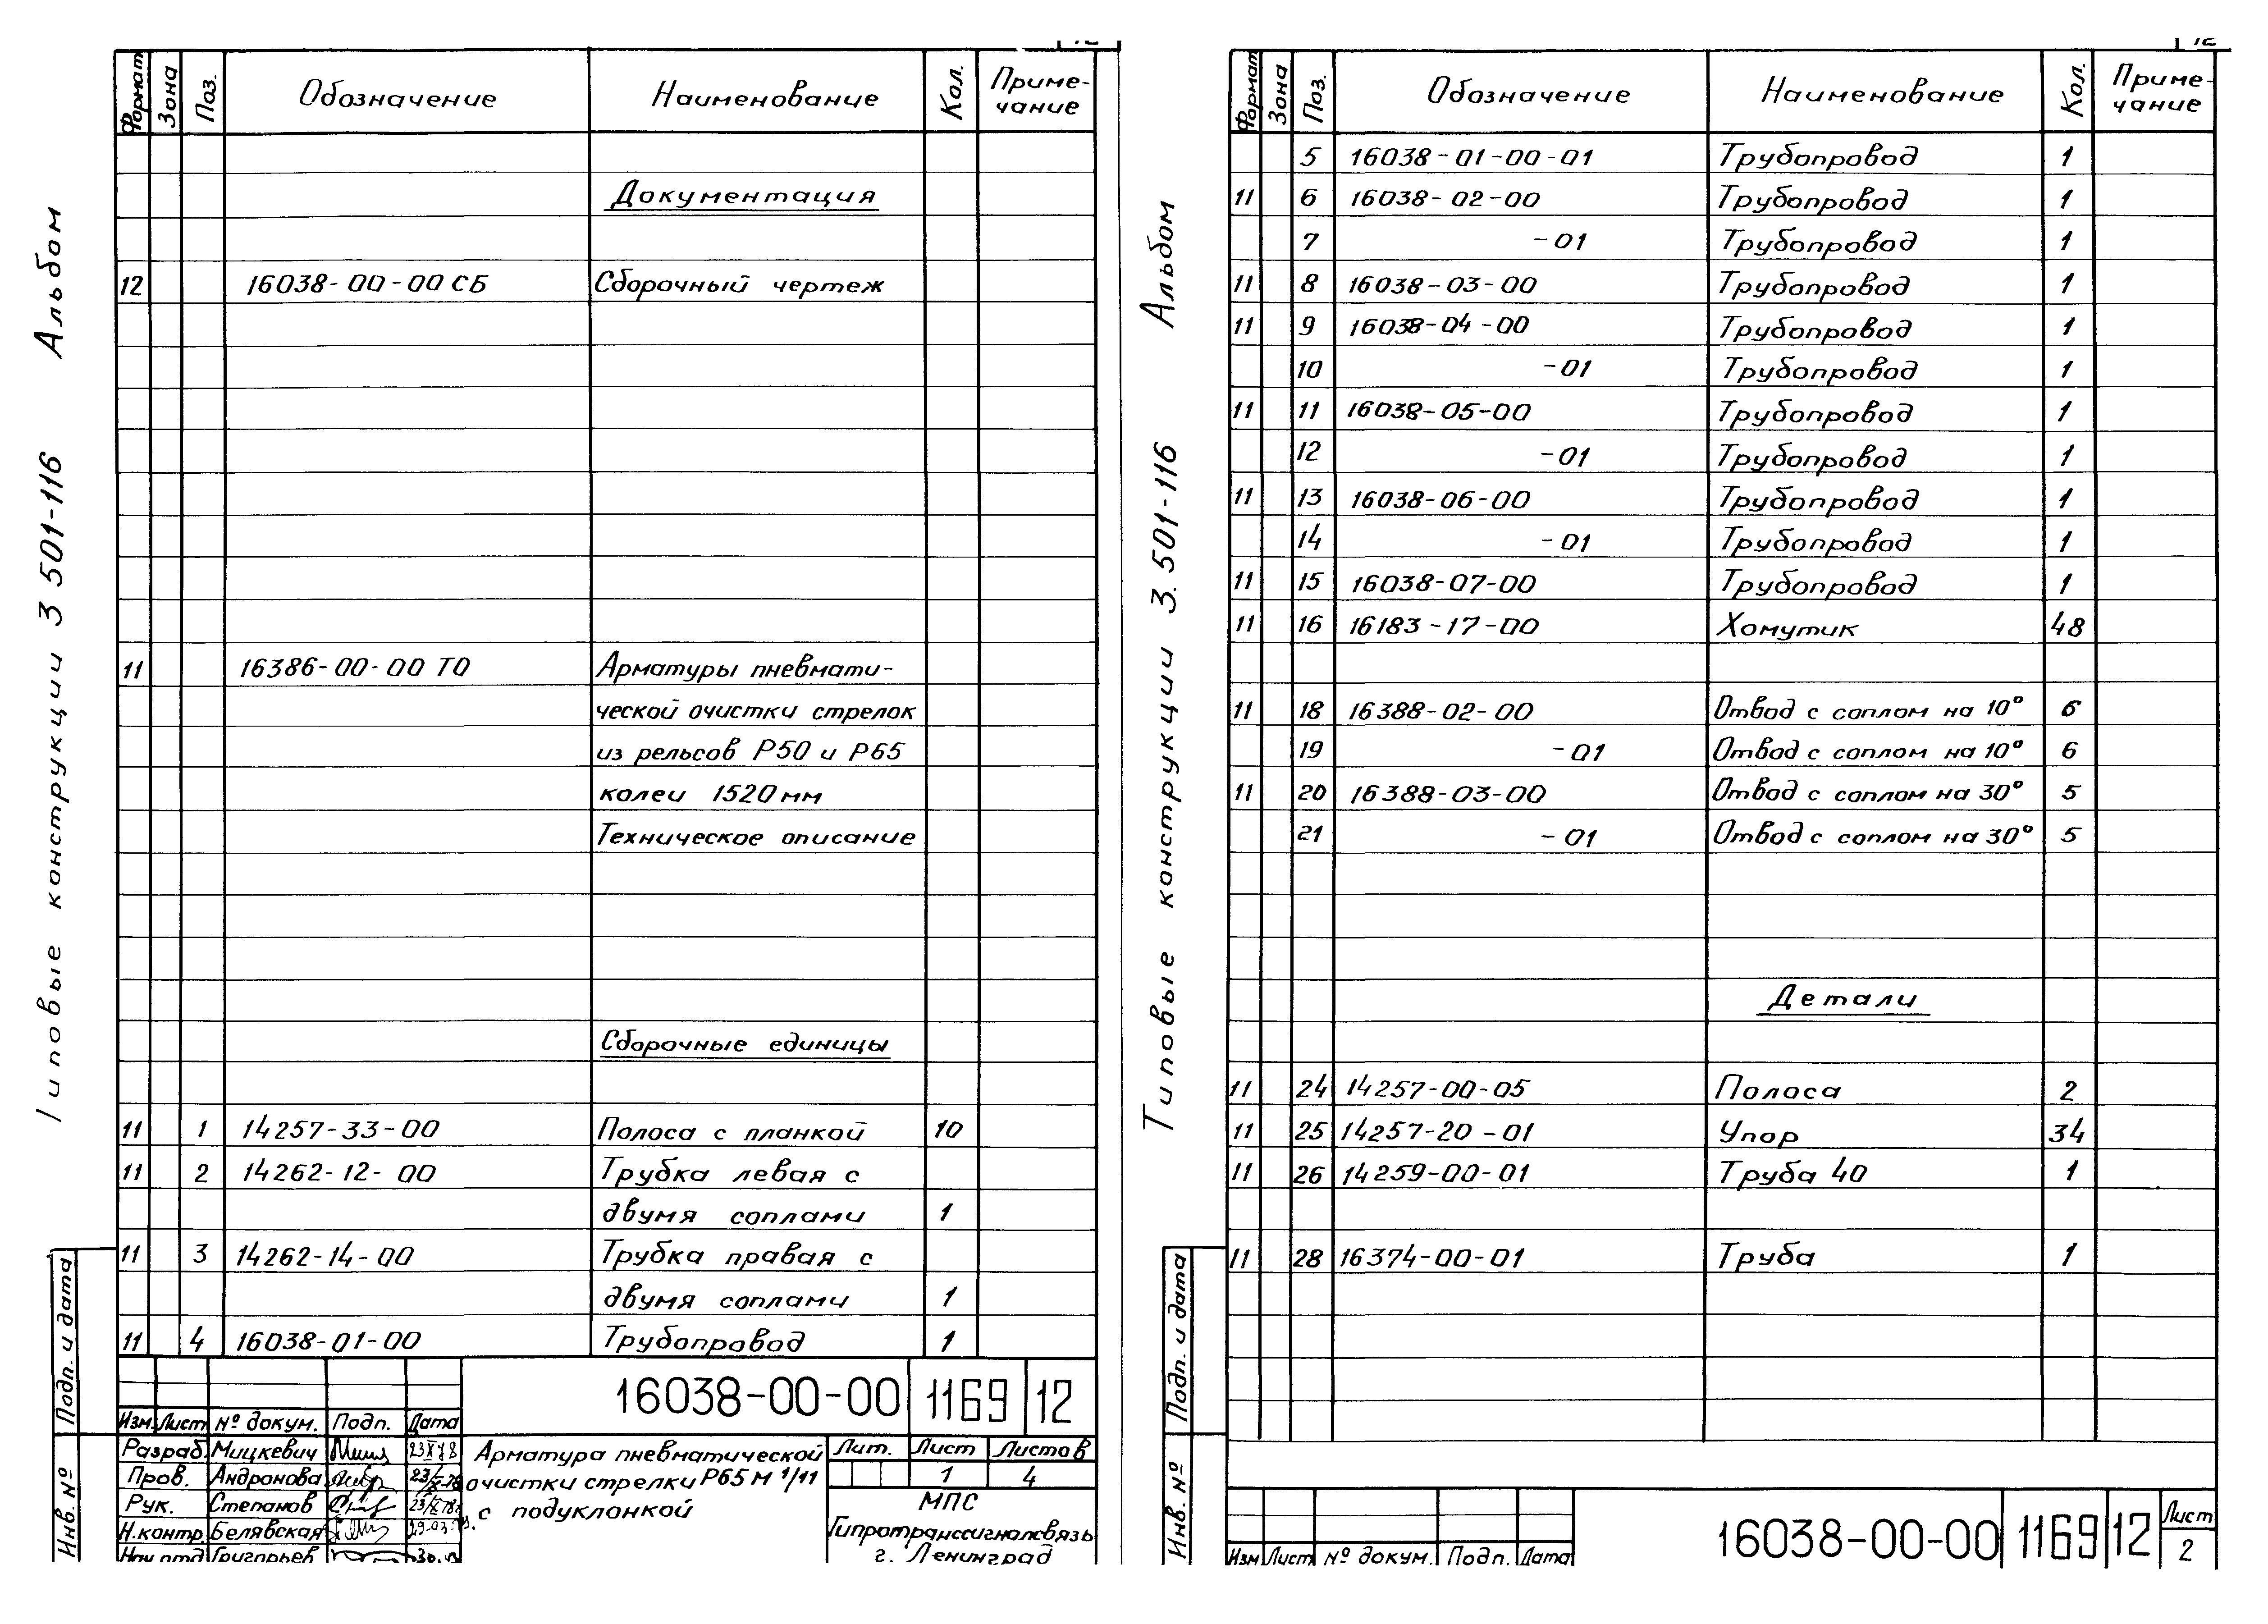 Формат Зона Поз. Обозначение Наименование Кол. Приме-
чание
Документация
12 16038-00-00 СБ Сборочный чертеж
11 16386-00-00 ТО Арматуры пневмати-
ческой очистки стрелок
из рельсов Р50 и Р65
колеи 1520 мм
Техническое описание
Сборочные единицы
11 1 14257-33-00 Полоса с планкой 10
11 2 14262-12-00 Трубка левая с
двумя соплами 1
11 3 14262-14-00 Трубка правая с
двумя соплами 1
11 4 16038-01-00 Трубопровод 1
16038-00-00 1169 12
Изм. Лист № докум. Подп. Дата
Разраб. Мицкевич
Пров. Андронова
Рук. Степанов
Н.контр. Белявская
Нач.отд. Григорьев
Арматура пневматической
очистки стрелки Р65 М 1/11
с подуклонкой
Лит. Лист Листов
1 4
МПС
Гипротранссигналсвязь
г. Ленинград
Типовые конструкции 3 501-116 Альбом
Подп. и дата
Инв. №
Формат Зона Поз. Обозначение Наименование Кол. Приме-
чание
5 16038-01-00-01 Трубопровод 1
11 6 16038-02-00 Трубопровод 1
7 -01 Трубопровод 1
11 8 16038-03-00 Трубопровод 1
11 9 16038-04-00 Трубопровод 1
10 -01 Трубопровод 1
11 11 16038-05-00 Трубопровод 1
12 -01 Трубопровод 1
11 13 16038-06-00 Трубопровод 1
14 -01 Трубопровод 1
11 15 16038-07-00 Трубопровод 1
11 16 16183-17-00 Хомутик 48
11 18 16388-02-00 Отвод с соплом на 10° 6
19 -01 Отвод с соплом на 10° 6
11 20 16388-03-00 Отвод с соплом на 30° 5
21 -01 Отвод с соплом на 30° 5
Детали
11 24 14257-00-05 Полоса 2
11 25 14257-20-01 Упор 34
11 26 14259-00-01 Труба 40 1
11 28 16374-00-01 Труба 1
16038-00-00 1169 12 Лист
2
Изм. Лист № докум. Подп. Дата
Типовые конструкции 3.501-116 Альбом
Подп. и дата
Инв. №